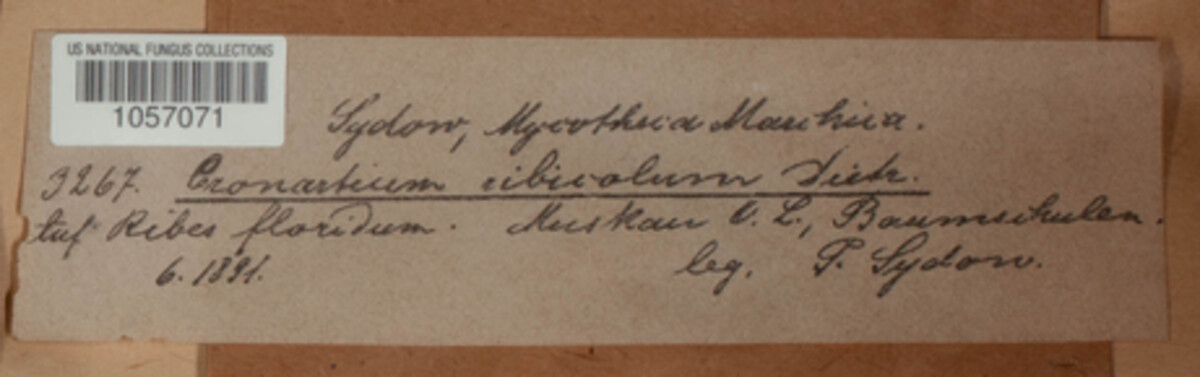 US NATIONAL FUNGUS COLLECTIONS
1057071
Sydow, Mycotheca Marchica.
3267. Cronartium ribicolum Dietr.
Auf Ribes floridum. Muskau O. L., Baumschulen.
6. 1891.
leg. P. Sydow.